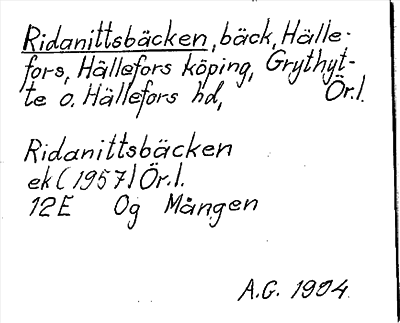 Ridanittsbäcken, bäck, Hälle-
fors, Hällefors köping, Grythyt-
te o. Hällefors hd, Ör.l.
Ridanittsbäcken
ek (1957) Ör.l.
12E Og Mången
A.G. 1994.